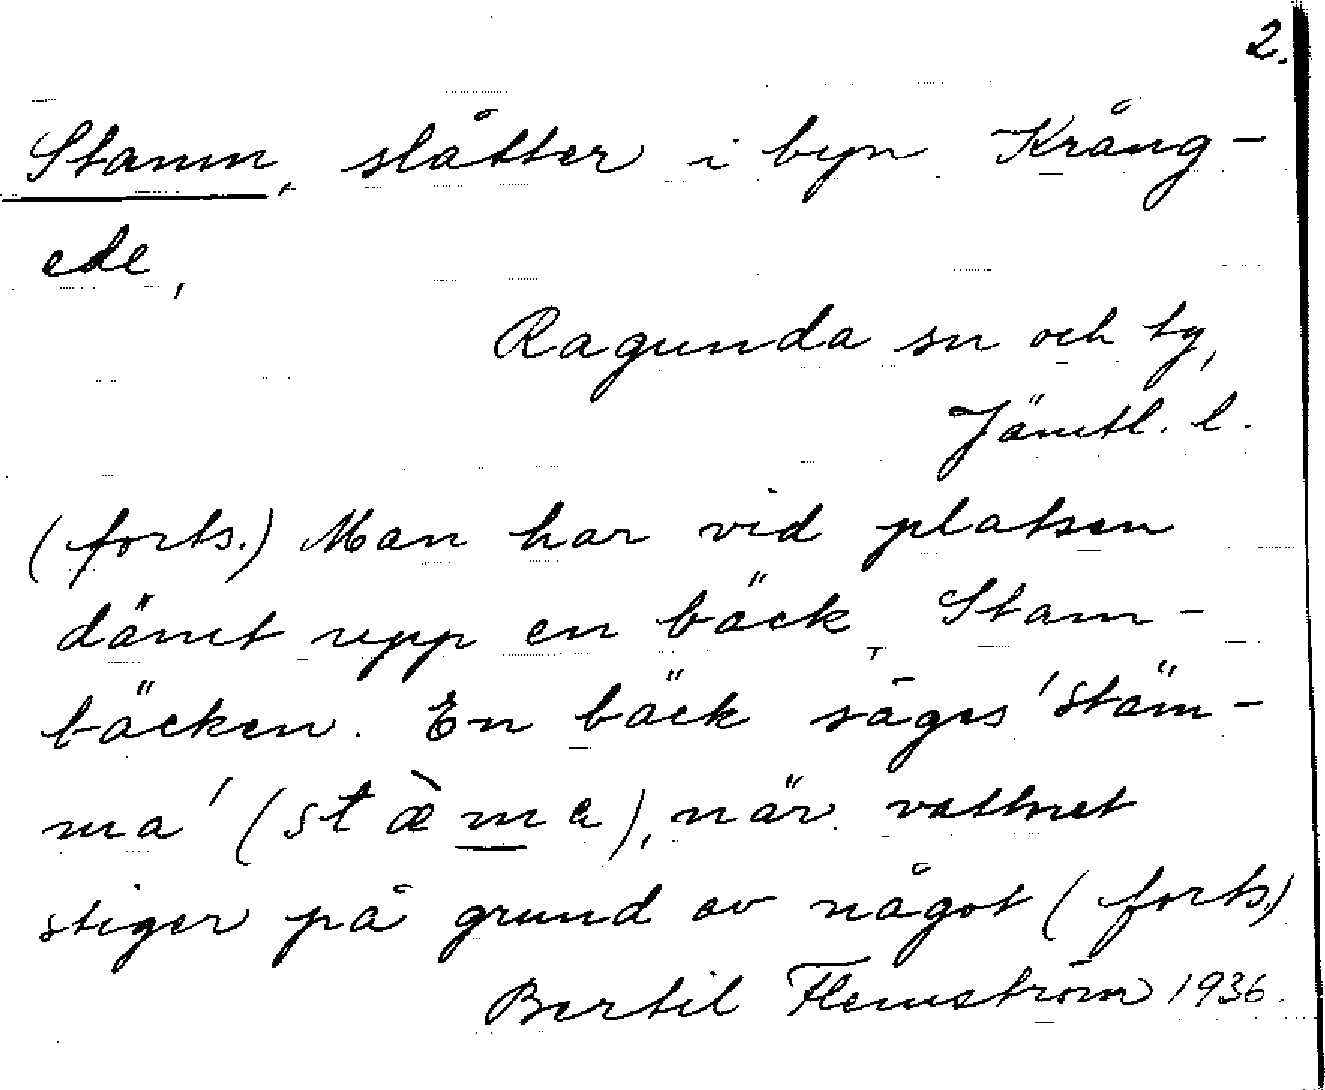 2.
Stamm, slåtter i byn Krång-
ede,
Ragunda sn och tg,
Jämtl. l.
(forts.) Man har vid platsen
dämt upp en bäck, Stam-
bäcken. En bäck säges 'stäm-
ma' (stæ̀ma), när vattnet
stiger på grund av något (forts.)
Bertil Flemström 1936.